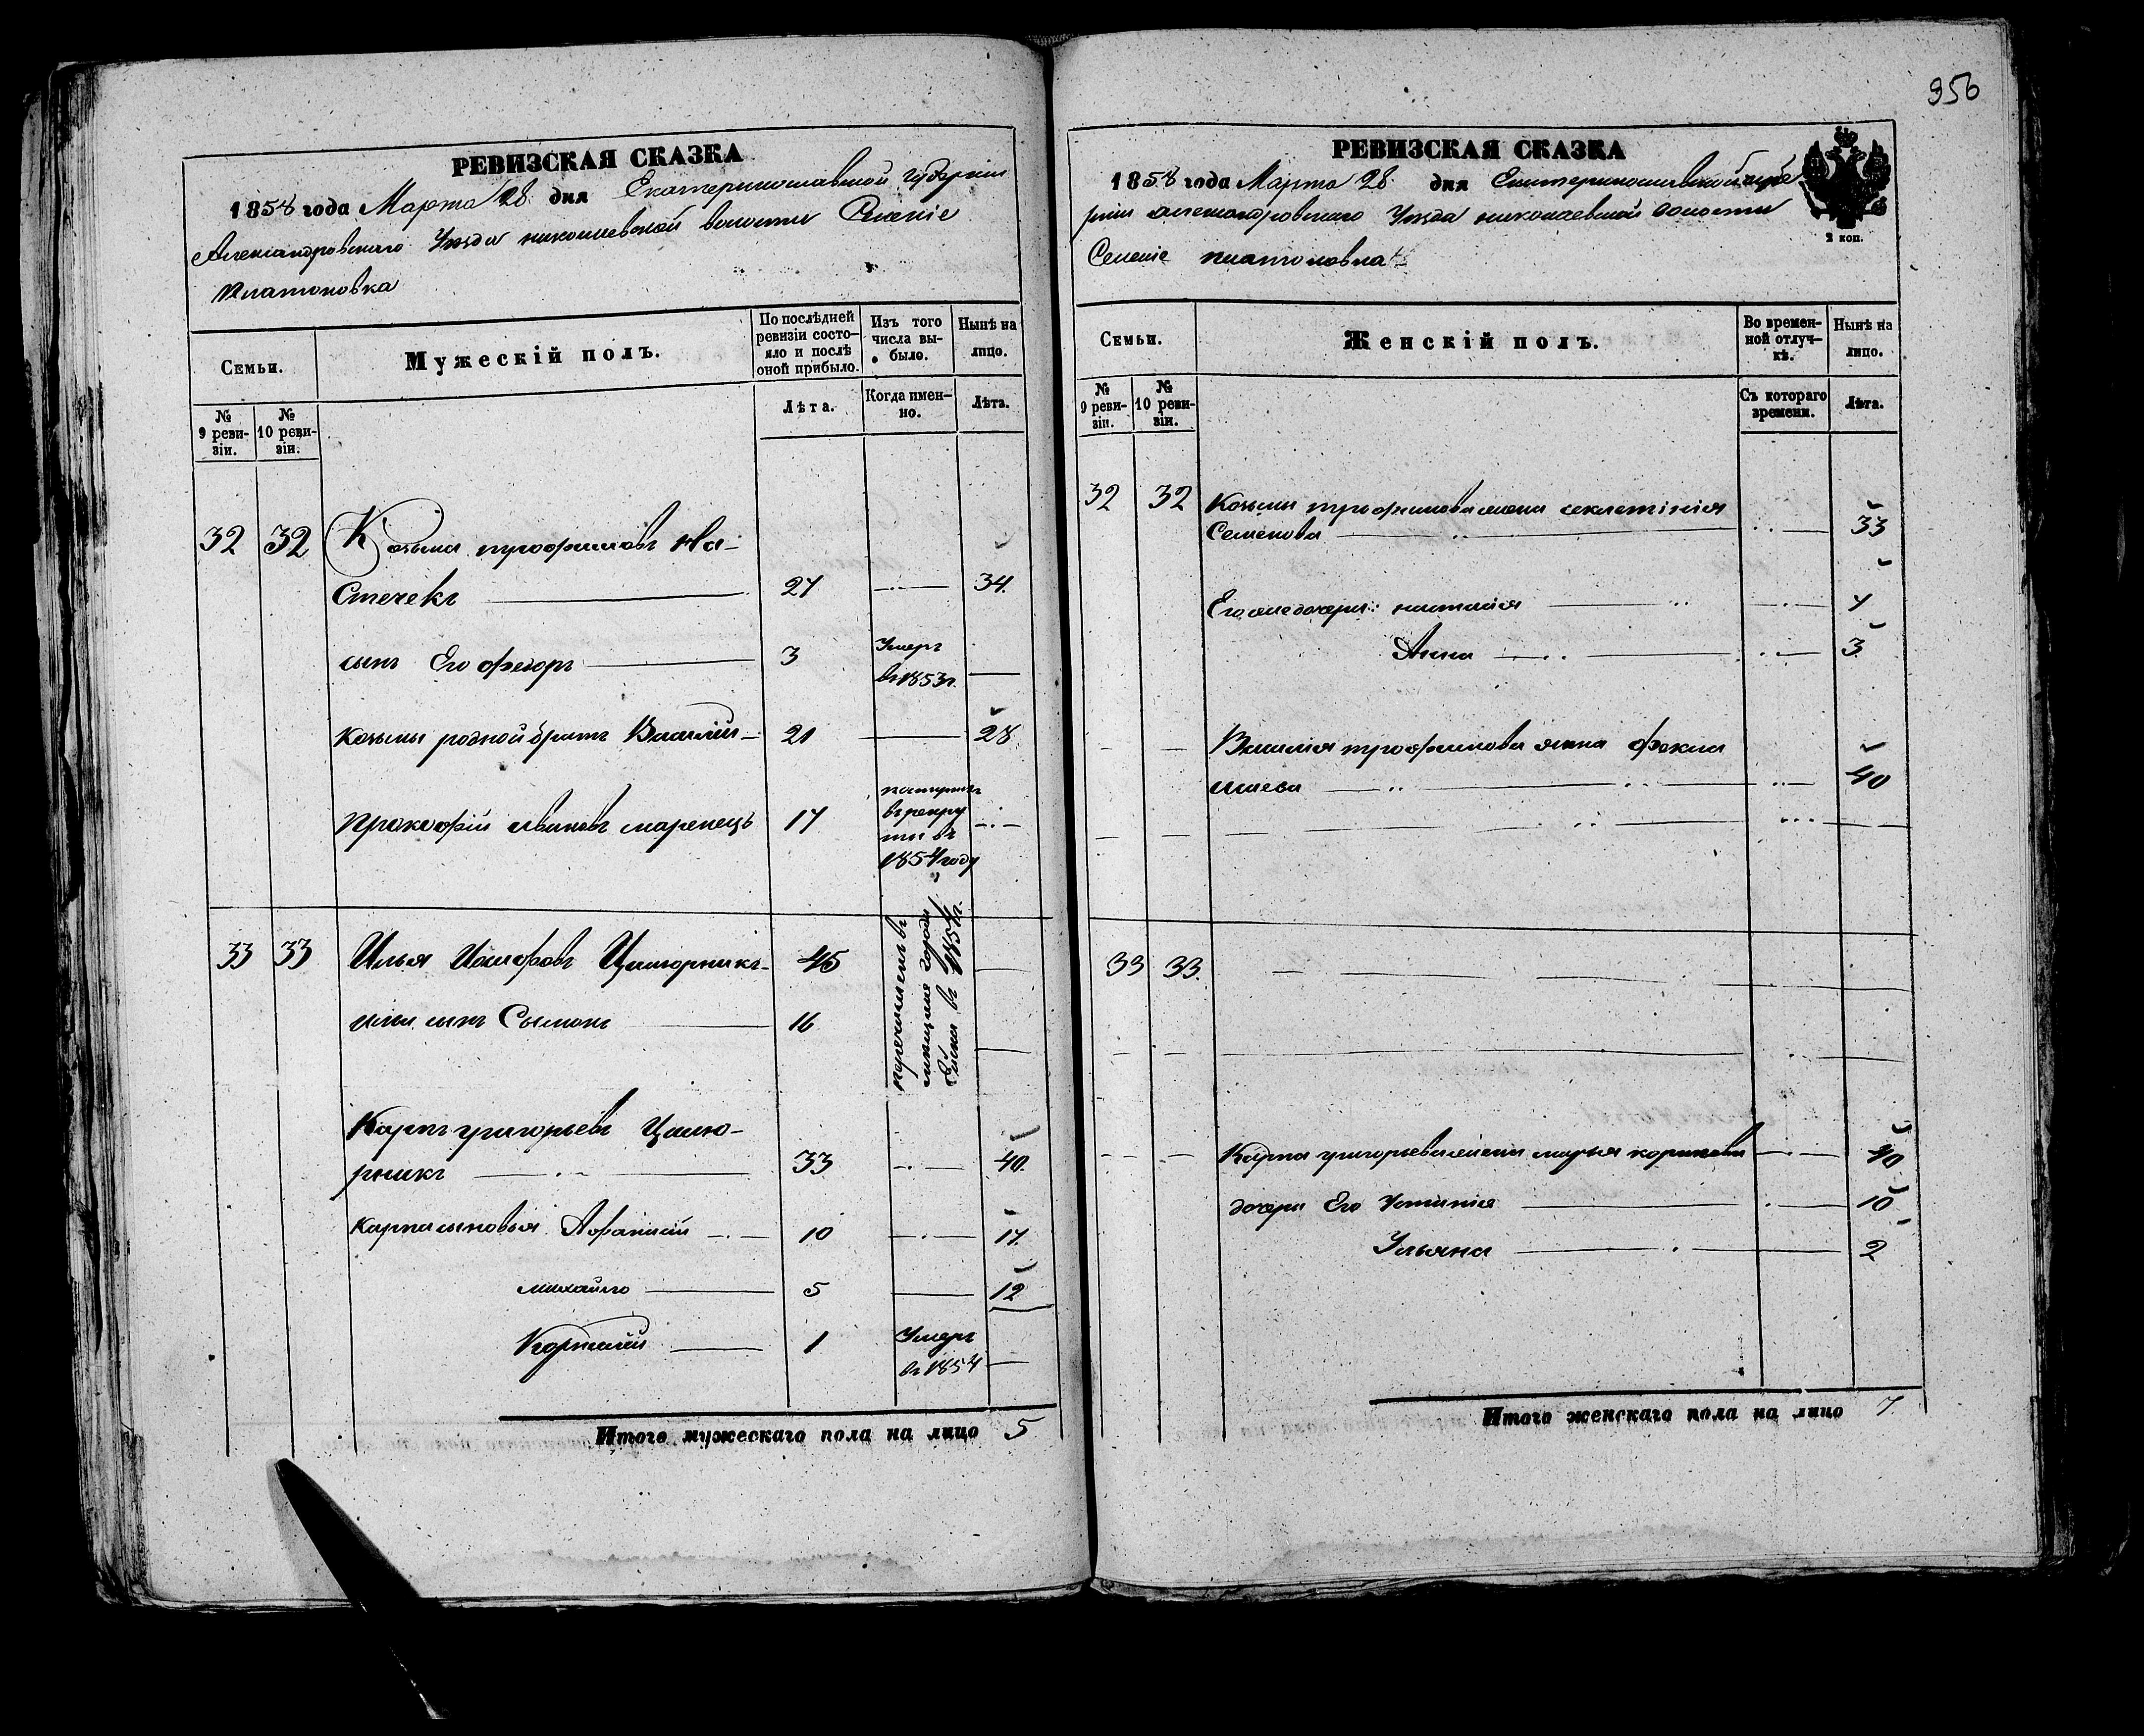 956
РЕВИЗСКАЯ СКАЗКА
1858 года Марта 28 дня Екатеринославской губернии
Александровского Уезда николаевской волости Селеніе
Платоновка
Семьи.
Мужескій полъ.
По послѣдней ревизіи состо-
яло и послѣ
оной прибыло.
Изъ того
числа вы-
было.
Нынѣ на
лицо.
№
9 реви-
зіи.
№
10 реви-
зіи.
Лѣта.
Когда имен-
но.
Лѣта.
32 32 Козьма трофимовъ
27 34.
сынъ Его федоръ 3 Умеръ
въ 1853г.
Козьмы родной братъ Василій 21 28
Прокофій ивановъ 17
въ рекру
ты въ
1854 году
33 33 Илья 45
ильи сынъ 16
перечисленъ въ
мещане города
Ейска въ
Карпъ григорьевъ Цымо-
рникъ 33 40.
Карпа сыновья Афанасій 10 17.
михайло 5 12
Корнилий 1 Умеръ
въ 1854
Итого мужескаго пола на лицо 5
РЕВИЗСКАЯ СКАЗКА
1858 года Марта 28 дня Екатеринославской губе
рніи александровского Уезда николаевской волости
Селеніе платоновка
2 коп.
Семьи.
Женскій полъ.
Во времен-
ной отлуч-
кѣ.
Нынѣ на
лицо.
№
9 реви-
зіи.
№
10 реви-
зіи.
Съ котораго
времени.
Лѣта.
32 32 Козьмы трофимова жена
Семенова 33
Его же дочери: наталія 7
Анна 3.
Василия трофимова жена фекла
40
33 33.
Карпа григорьева жена марья 40
дочери Его Устинія 10
Ульяна 2
Итого женскаго пола на лицо 7